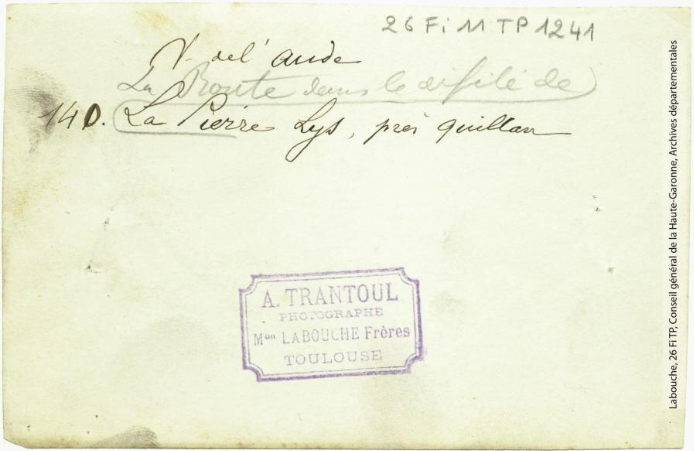 26 Fi 11 TP 1241
V. de l'Aude
La Route dans le défilé de
140. La Pierre Lys, près Quillan
A. TRANTOUL
PHOTOGRAPHE
Mon LABOUCHE Frères
TOULOUSE
Labouche, 26 Fi TP, Conseil général de la Haute-Garonne, Archives départementales